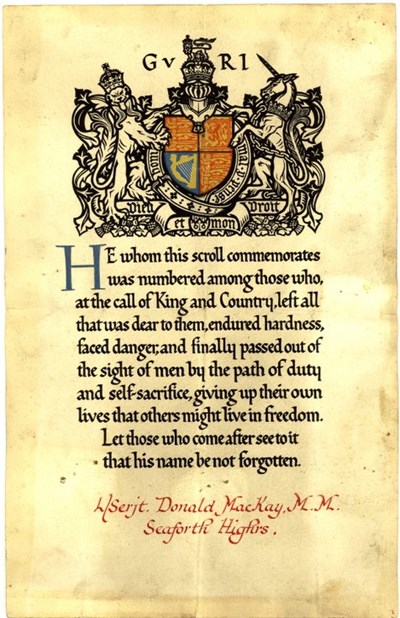 GvRI
Dieu et mon Droit
HE whom this scroll commemorates
was numbered among those who,
at the call of King and Country, left all
that was dear to them, endured hardness,
faced danger, and finally passed out of
the sight of men by the path of duty
and self-sacrifice, giving up their own
lives that others might live in freedom.
Let those who come after see to it
that his name be not forgotten.
L/Serjt. Donald MacKay, M.M.
Seaforth Highrs.